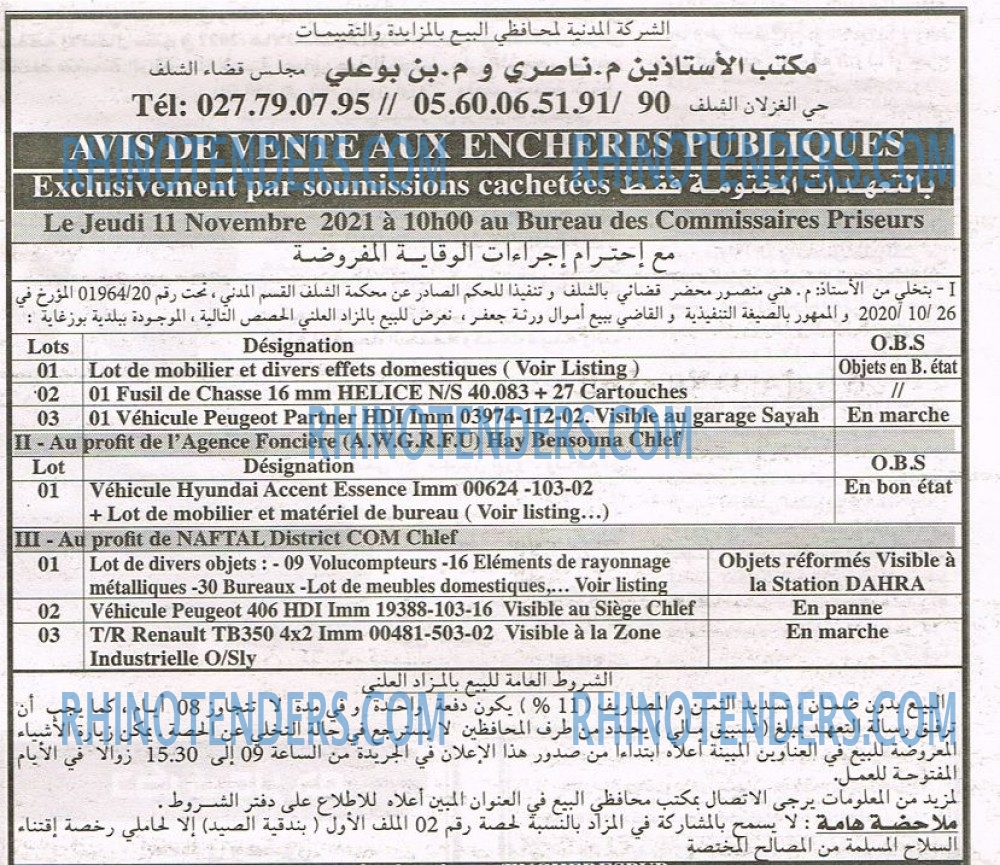 الشركة المدنية لمحافظي البيع بالمزايدة والتقييمات
مكتب الأستاذين م.ناصري و م.بن بوعلي مجلس قضاء الشلف
Tél: 027.79.07.95 // 05.60.06.51.91/ 90 حي الغزلان الشلف
AVIS DE VENTE AUX ENCHERES PUBLIQUES
RHINOTENDERS.COM RHINOTENDERS.COM
Exclusivement par soumissions cachetées بالتعهدات المختومة فقط
Le Jeudi 11 Novembre 2021 à 10h00 au Bureau des Commissaires Priseurs
مع إحترام إجراءات الوقاية المفروضة
I - بتخلي من الأستاذ: م . هني منصور محضر قضائي بالشلف و تنفيذا للحكم الصادر عن محكمة الشلف القسم المدني ، تحت رقم 01964/20 المؤرخ في
26 /10 /2020 و الممهور بالصيغة التنفيذية و القاضي ببيع أموال ورثة جعفر ، نعرض للبيع بالمزاد العلني الحصص التالية ، الموجودة ببلدية بوزغاية :
Lots Désignation O.B.S
01 Lot de mobilier et divers effets domestiques ( Voir Listing ) Objets en B. état
02 01 Fusil de Chasse 16 mm HELICE N/S 40.083 + 27 Cartouches //
03 01 Véhicule Peugeot Partner HDI Imm 03974-112-02 Visible au garage Sayah En marche
RHINOTENDERS.COM
II - Au profit de l'Agence Foncière (A.W.G.R.F.U) Hay Bensouna Chlef
Lot Désignation O.B.S
01 Véhicule Hyundai Accent Essence Imm 00624 -103-02 En bon état
+ Lot de mobilier et matériel de bureau ( Voir listing…)
III - Au profit de NAFTAL District COM Chlef
01 Lot de divers objets : - 09 Volucompteurs -16 Eléments de rayonnage Objets réformés Visible à
métalliques -30 Bureaux -Lot de meubles domestiques,… Voir listing la Station DAHRA
02 Véhicule Peugeot 406 HDI Imm 19388-103-16 Visible au Siège Chlef En panne
03 T/R Renault TB350 4x2 Imm 00481-503-02 Visible à la Zone En marche
Industrielle O/Sly
الشروط العامة للبيع بالمزاد العلني
RHINOTENDERS.COM RHINOTENDERS.COM
البيع بدون ضمان ، تسديد الثمن و المصاريف (11 % ) يكون دفعة واحدة و في مدة لا تتجاوز 08 أيام، كما يجب أن
ترفق رسالة التعهد بمبلغ (تسبيق مالي ) يحدد من طرف المحافظين لا يسترجع في حالة التخلي عن الحصة. يمكن زيارة الأشياء
المعروضة للبيع في العناوين المبينة أعلاه ابتداءا من صدور هذا الإعلان في الجريدة من الساعة 09 إلى 15.30 زوالا في الأيام
المفتوحة للعمل.
لمزيد من المعلومات يرجى الاتصال بمكتب محافظي البيع في العنوان المبين أعلاه للاطلاع على دفتر الشروط .
ملاحظة هامة : لا يسمح بالمشاركة في المزاد بالنسبة لحصة رقم 02 الملف الأول ( بندقية الصيد) إلا لحاملي رخصة إقتناء
السلاح المسلمة من المصالح المختصة